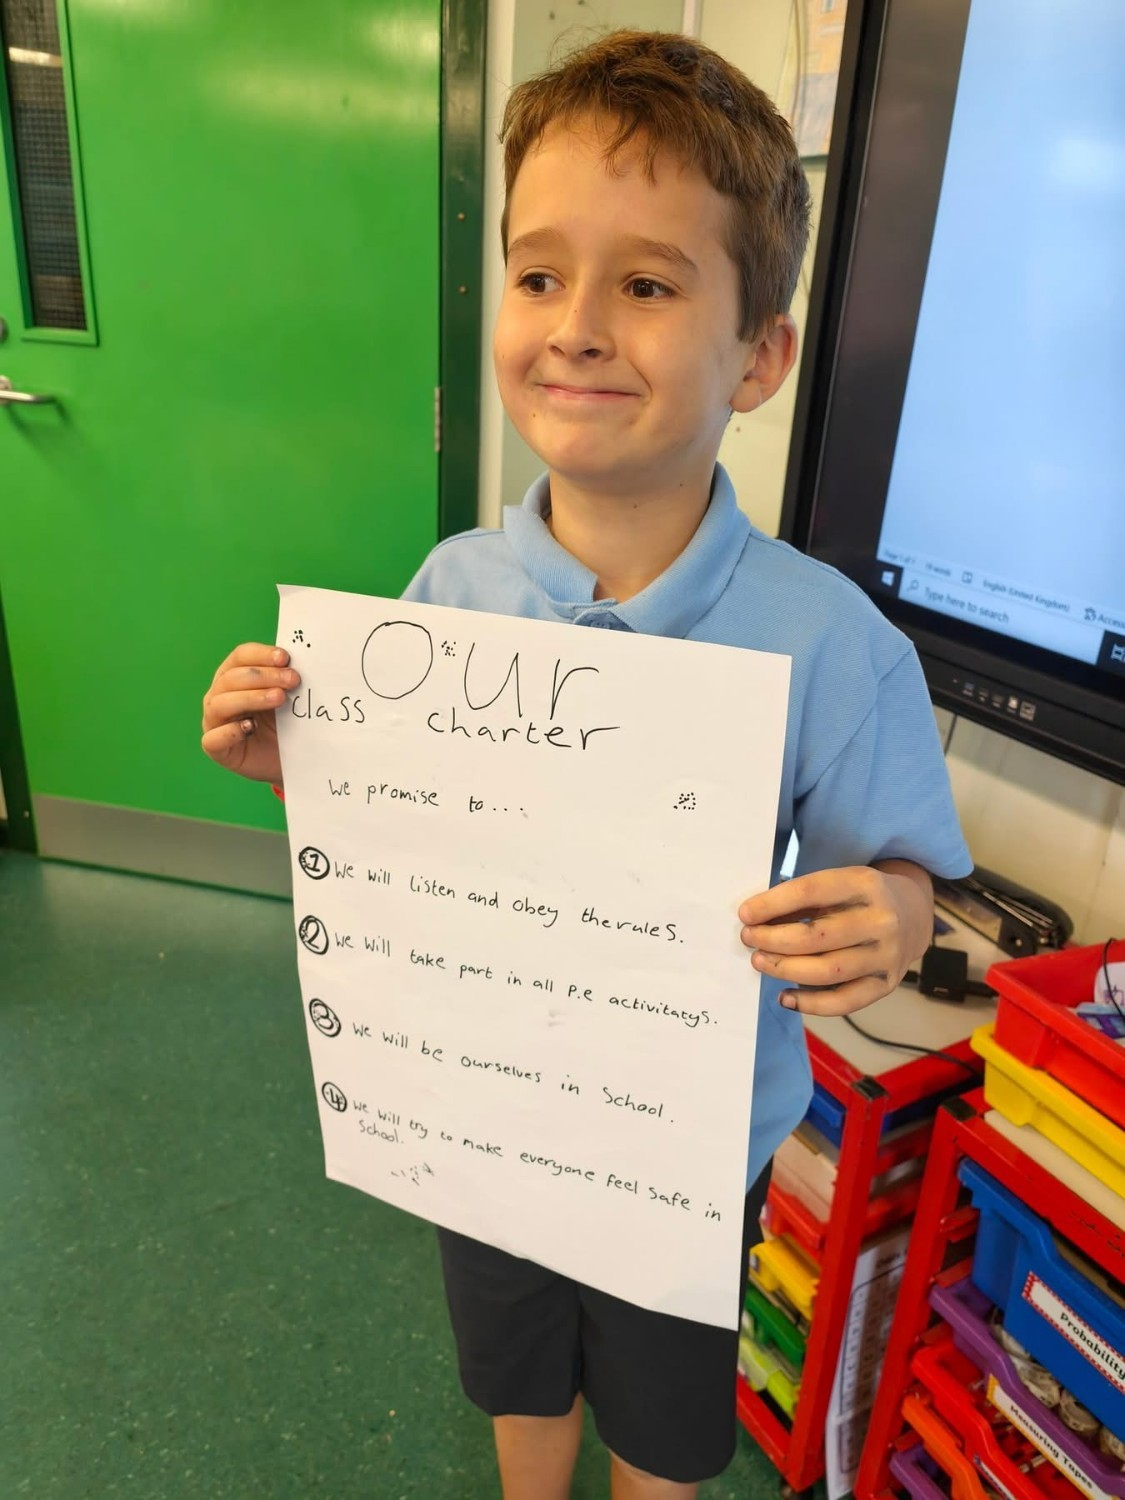 Our
class charter
We promise to...
1 We will listen and obey the rules.
2 We will take part in all P.e activitatys.
3 We will be ourselves in School.
4 We will try to make everyone feel safe in
School.
Page 1 of 1 19 words English (United Kingdom)
Type here to search
Probability
Measuring Tapes